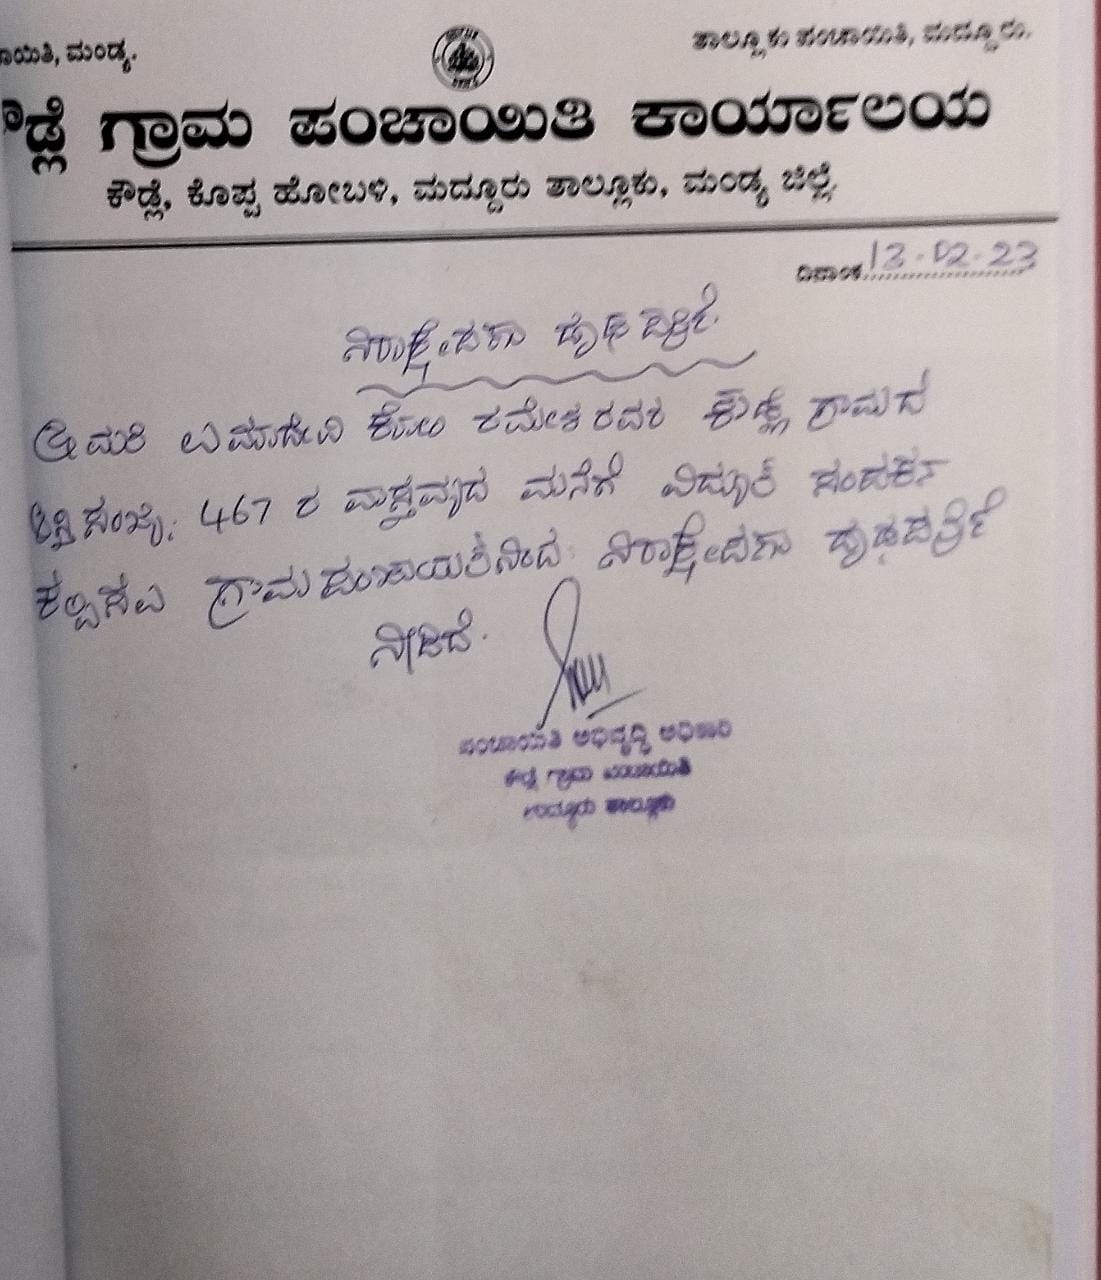 ಾಯಿತಿ, ಮಂಡ್ಯ.
ತಾಲ್ಲೂಕು ಪಂಚಾಯಿತಿ, ಮದ್ದೂರು.
ೌಡ್ಲೆ ಗ್ರಾಮ ಪಂಚಾಯಿತಿ ಕಾರ್ಯಾಲಯ
ಕೌಡ್ಲೆ, ಕೊಪ್ಪ ಹೋಬಳಿ, ಮದ್ದೂರು ತಾಲ್ಲೂಕು, ಮಂಡ್ಯ ಜಿಲ್ಲೆ.
ದಿನಾಂಕ 13.02.23
ನಿರಾಕ್ಷೇಪಣಾ ದೃಢಪತ್ರಿಕೆ.
ಶ್ರೀಮತಿ ಕೋಂ ರಮೇಶ ರವರ ಕೌಡ್ಲೆ ಗ್ರಾಮದ
467 ರ ವಾಸ್ತವ್ಯದ ಮನೆಗೆ ವಿದ್ಯುತ್ ಸಂಪರ್ಕ
ಕಲ್ಪಿಸಲು ಗ್ರಾಮಪಂಚಾಯತಿನಿಂದ ನಿರಾಕ್ಷೇಪಣಾ ದೃಢಪತ್ರಿಕೆ
ನೀಡಿದೆ.
ಪಂಚಾಯಿತಿ ಅಭಿವೃದ್ಧಿ ಅಧಿಕಾರಿ
ಕೌಡ್ಲೆ ಗ್ರಾಮ ಪಂಚಾಯಿತಿ
ಮದ್ದೂರು ತಾಲ್ಲೂಕು